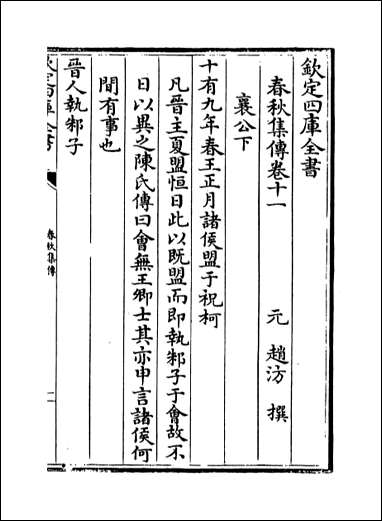 欽定四庫全書
春秋集傳卷十一
元 趙汸 撰
襄公下
十有九年春王正月諸侯盟于祝柯
凡晉主夏盟恒日此以既盟而即執邾子于會故不
日以異之陳氏傳曰會無王卿士其亦申言諸侯何
間有事也
晉人執邾子
欽定四庫全書
春秋集傳